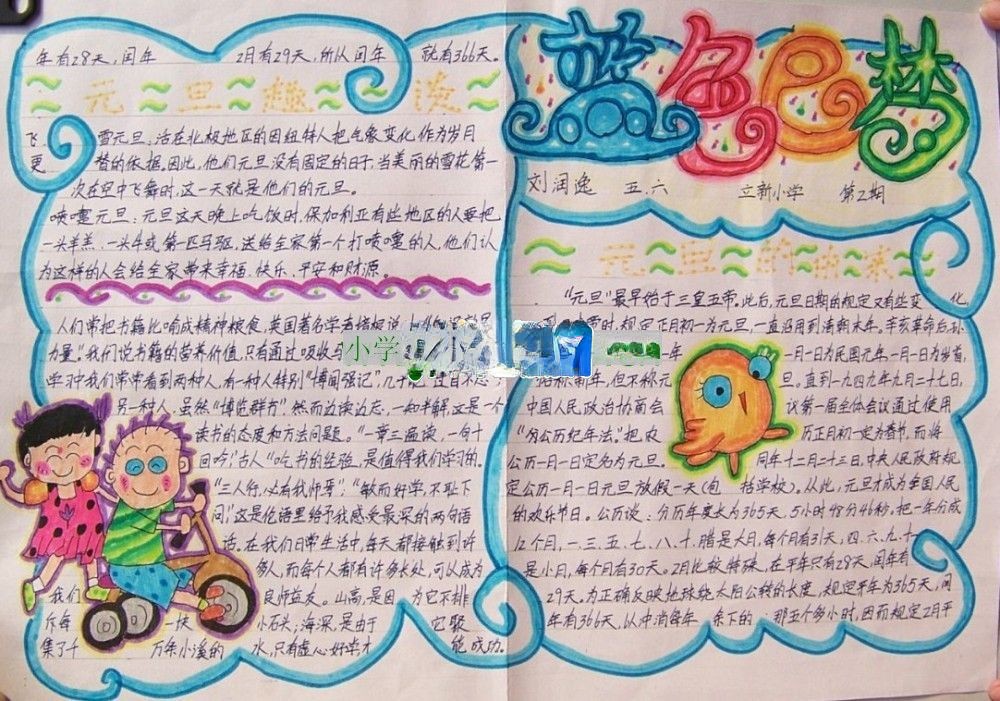 蓝色的梦
刘润逸 五.六 立新小学 第2期
元旦的由来
"元旦"最早始于三皇五帝。此后,元旦日期的规定又有些变化,
时,规定正月初一为元旦,一直沿用到清朝末年。辛亥革命后,孙
一年一月一日为民国元年一月一日为岁首,
称新年,但不称元旦。直到一九四九年九月二十七日,
中国人民政治协商会议第一届全体会议通过使用
"公历纪年法",把农历正月初一定为春节,而将
公历一月一日定名为元旦。同年十二月二十三日,中央人民政府规
定公历一月一日元旦放假一天(包括学校)。从此,元旦才成为全国人民
的欢乐节日。公历说:分历年度长为365天,5小时48分46秒,把一年分成
12个月,一、三、五、七、八、十、腊是大月,每个月有31天,四、六、九、十一
是小月,每个月有30天。2月比较特殊,在平年只有28天,闰年有
29天。为正确反映地球绕太阳公转的长度,规定平年为365天,闰
年有366天,以冲消每年余下的那五个多小时,因而规定2月平
年有28天,闰年2月有29天,所以闰年就有366天。
元旦趣谈
飞雪元旦:活在北极地区的因纽特人把气象变化作为岁月
更替的依据。因此,他们元旦没有固定的日子,当美丽的雪花第一
次在空中飞舞时,这一天就是他们的元旦。
喷嚏元旦:元旦这天晚上吃饭时,保加利亚有些地区的人要把
一头羊羔、一头牛或第一匹马驱,送给全家第一个打喷嚏的人,他们认
为这样的人会给全家带来幸福、快乐、平安和财源。
人们常把书籍比喻成精神粮食,英国著名学者培根说
力量。"我们说书籍的营养价值,只有通过吸收与
学习中我们常常看到两种人,有一种人特别"博闻强记",几乎把"过目不忘"
另一种人,虽然"博览群书",然而边读边忘,一知半解,这是一个
读书的态度和方法问题。"一章三遍读,一句十
回吟"古人"吃书的经验,是值得我们学习的。
"三人行,必有我师焉";"敏而好学,不耻下
问"这是伦语里给予我感受最深的两句语
话。在我们日常生活中,每天都接触到许
多人,而每个人都有许多长处,可以成为
我们良师益友。山高,是因为它不排
斥每一块小石头;海深,是由于它聚
集了千万条小溪的水,只有虚心好学,才能成功。
小学